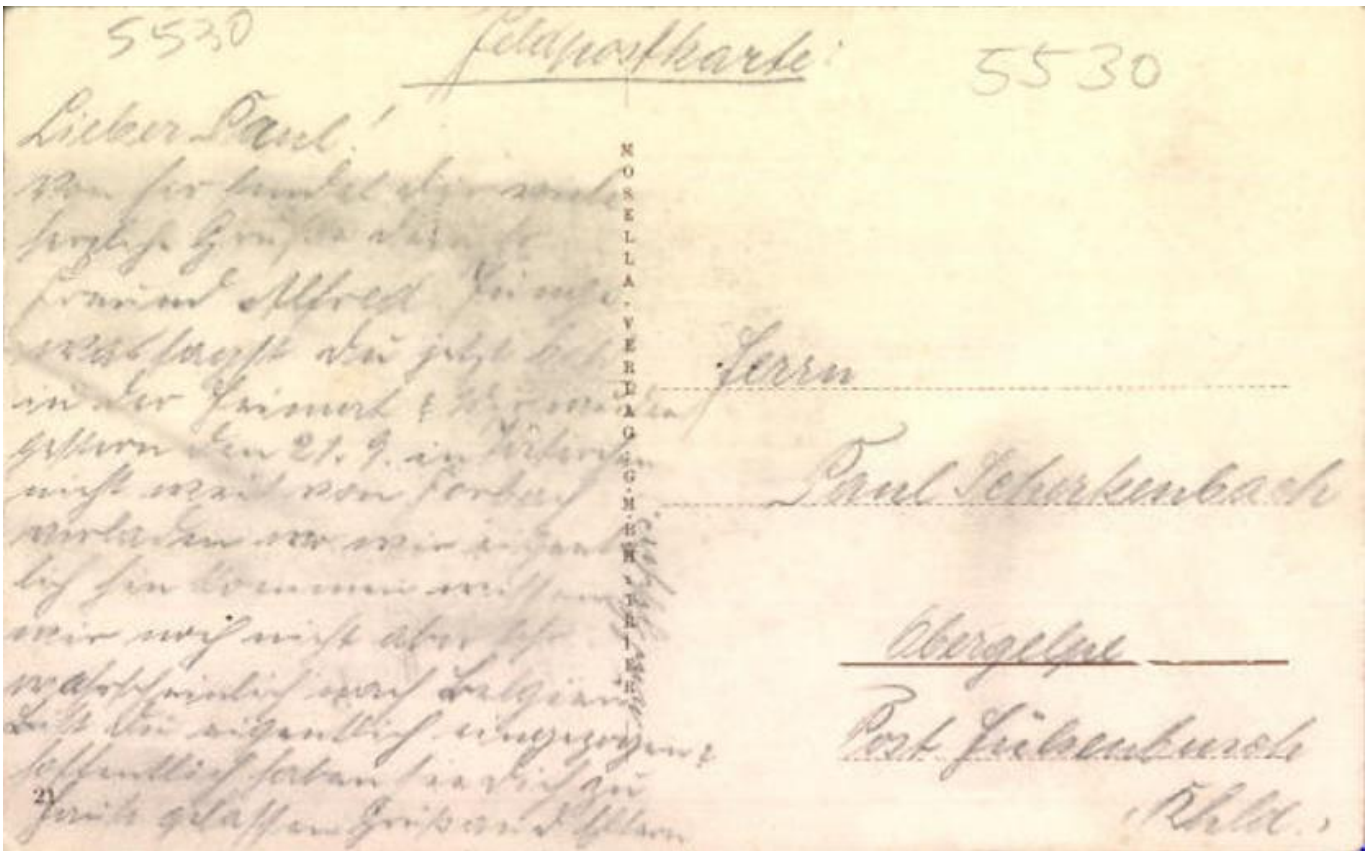 5530
Feldpostkarte!
5530
Lieber Paul!
Von hir sendet dir viele
herzliche Grüße dein
Freund Alfred
was sagst du jetzt
in der Heimat? Wir wurden
gestern den 21. 9. in
nicht weit von Forbach
verladen wo wir eigent
lich hin kommen wissen
wir noch nicht aber
wahrscheinlich nach Belgien
Bist du eigentlich eingezogen?
hoffentlich haben sie dich zu
Hause gelassen Gruß an d Eltern
MOSELLA-VERLAG G.M.B.H. TRIER
21
Herrn
Paul Scherkenbach
Obergelpe
Post Hülsenbusch
Rhld.